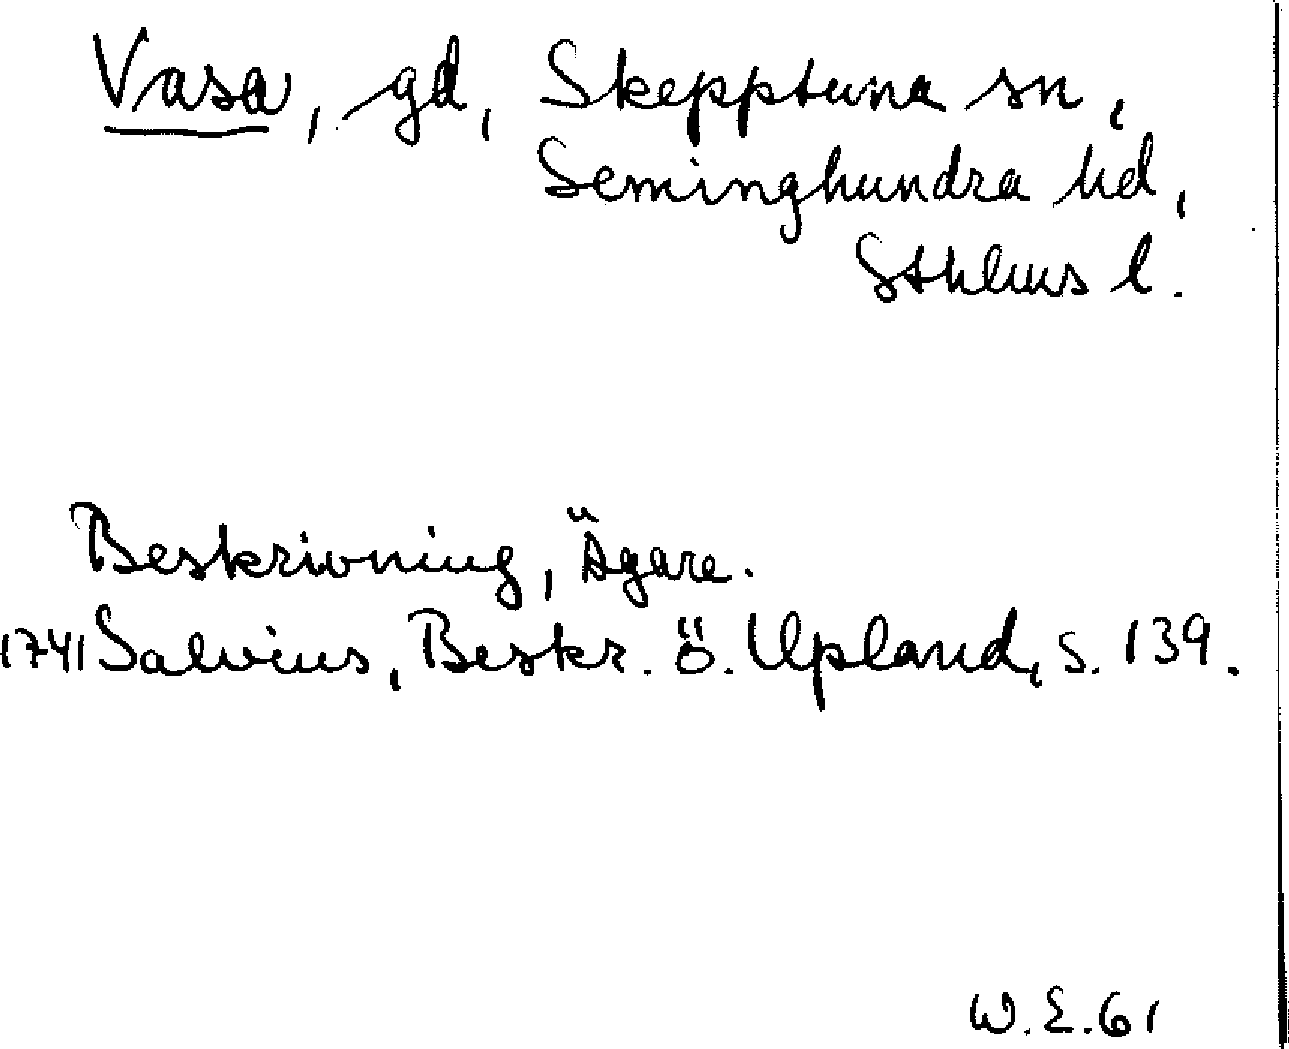 Vasa, gd, Skepptuna sn,
Seminghundra hd,
Sthlms l.
Beskrivning, Ägare.
1741 Salvius, Beskr. ö. Upland, s. 139.
W.E. 61